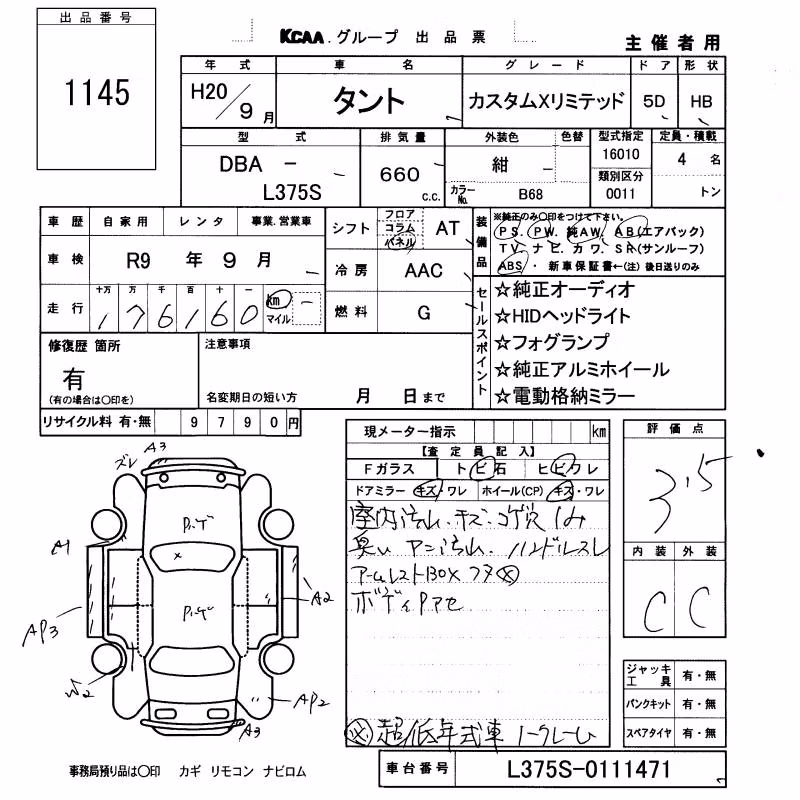 出品番号
1145
KCAA.グループ 出品票
主催者用
年式 車名 グレード ドア 形状
H20/9月 タント カスタムXリミテッド 5D HB
型式 排気量 外装色 色替 型式指定 定員・積載
DBA - 660 c.c. 紺 - 16010 4 名
類別区分
L375S カラーNo. B68 0011 トン
車歴 自家用 レンタ 事業.営業車
車検 R9 年 9 月
走行 十万 万 千 百 十 一
176160 km マイル -
シフト フロア コラム パネル AT
冷房 AAC
燃料 G
装備品
※純正のみ〇印をつけて下さい。
PS. PW. 純AW. AB(エアバック)
TV. ナビ. カワ. SR(サンルーフ)
ABS ・ 新車保証書←(注) 後日送りのみ
セールスポイント
☆純正オーディオ
☆HIDヘッドライト
☆フォグランプ
☆純正アルミホイール
☆電動格納ミラー
修復歴 箇所
有
(有の場合は〇印を)
注意事項
名変期日の短い方 月 日まで
リサイクル料 有・無 9790円
現メーター指示 km
【査定員記入】
Fガラス トビ石 ヒビワレ
ドアミラー キズ・ワレ ホイール(CP) キズ・ワレ
室内汚れ・キズ・コゲ穴 シミ
臭い アン汚れ. ハンドルスレ
アームレストBOXフタ
ボディPアセ
超低年式車 ノークレーム
評価点
3.5
内装 外装
C C
ジャッキ 工具 有・無
パンクキット 有・無
スペアタイヤ 有・無
A3
ズレ
P.ゲ
A1
×
A2
P.ゲ
AP3
W2
AP2
A3
事務局預り品は〇印 カギ リモコン ナビロム
車台番号 L375S-0111471